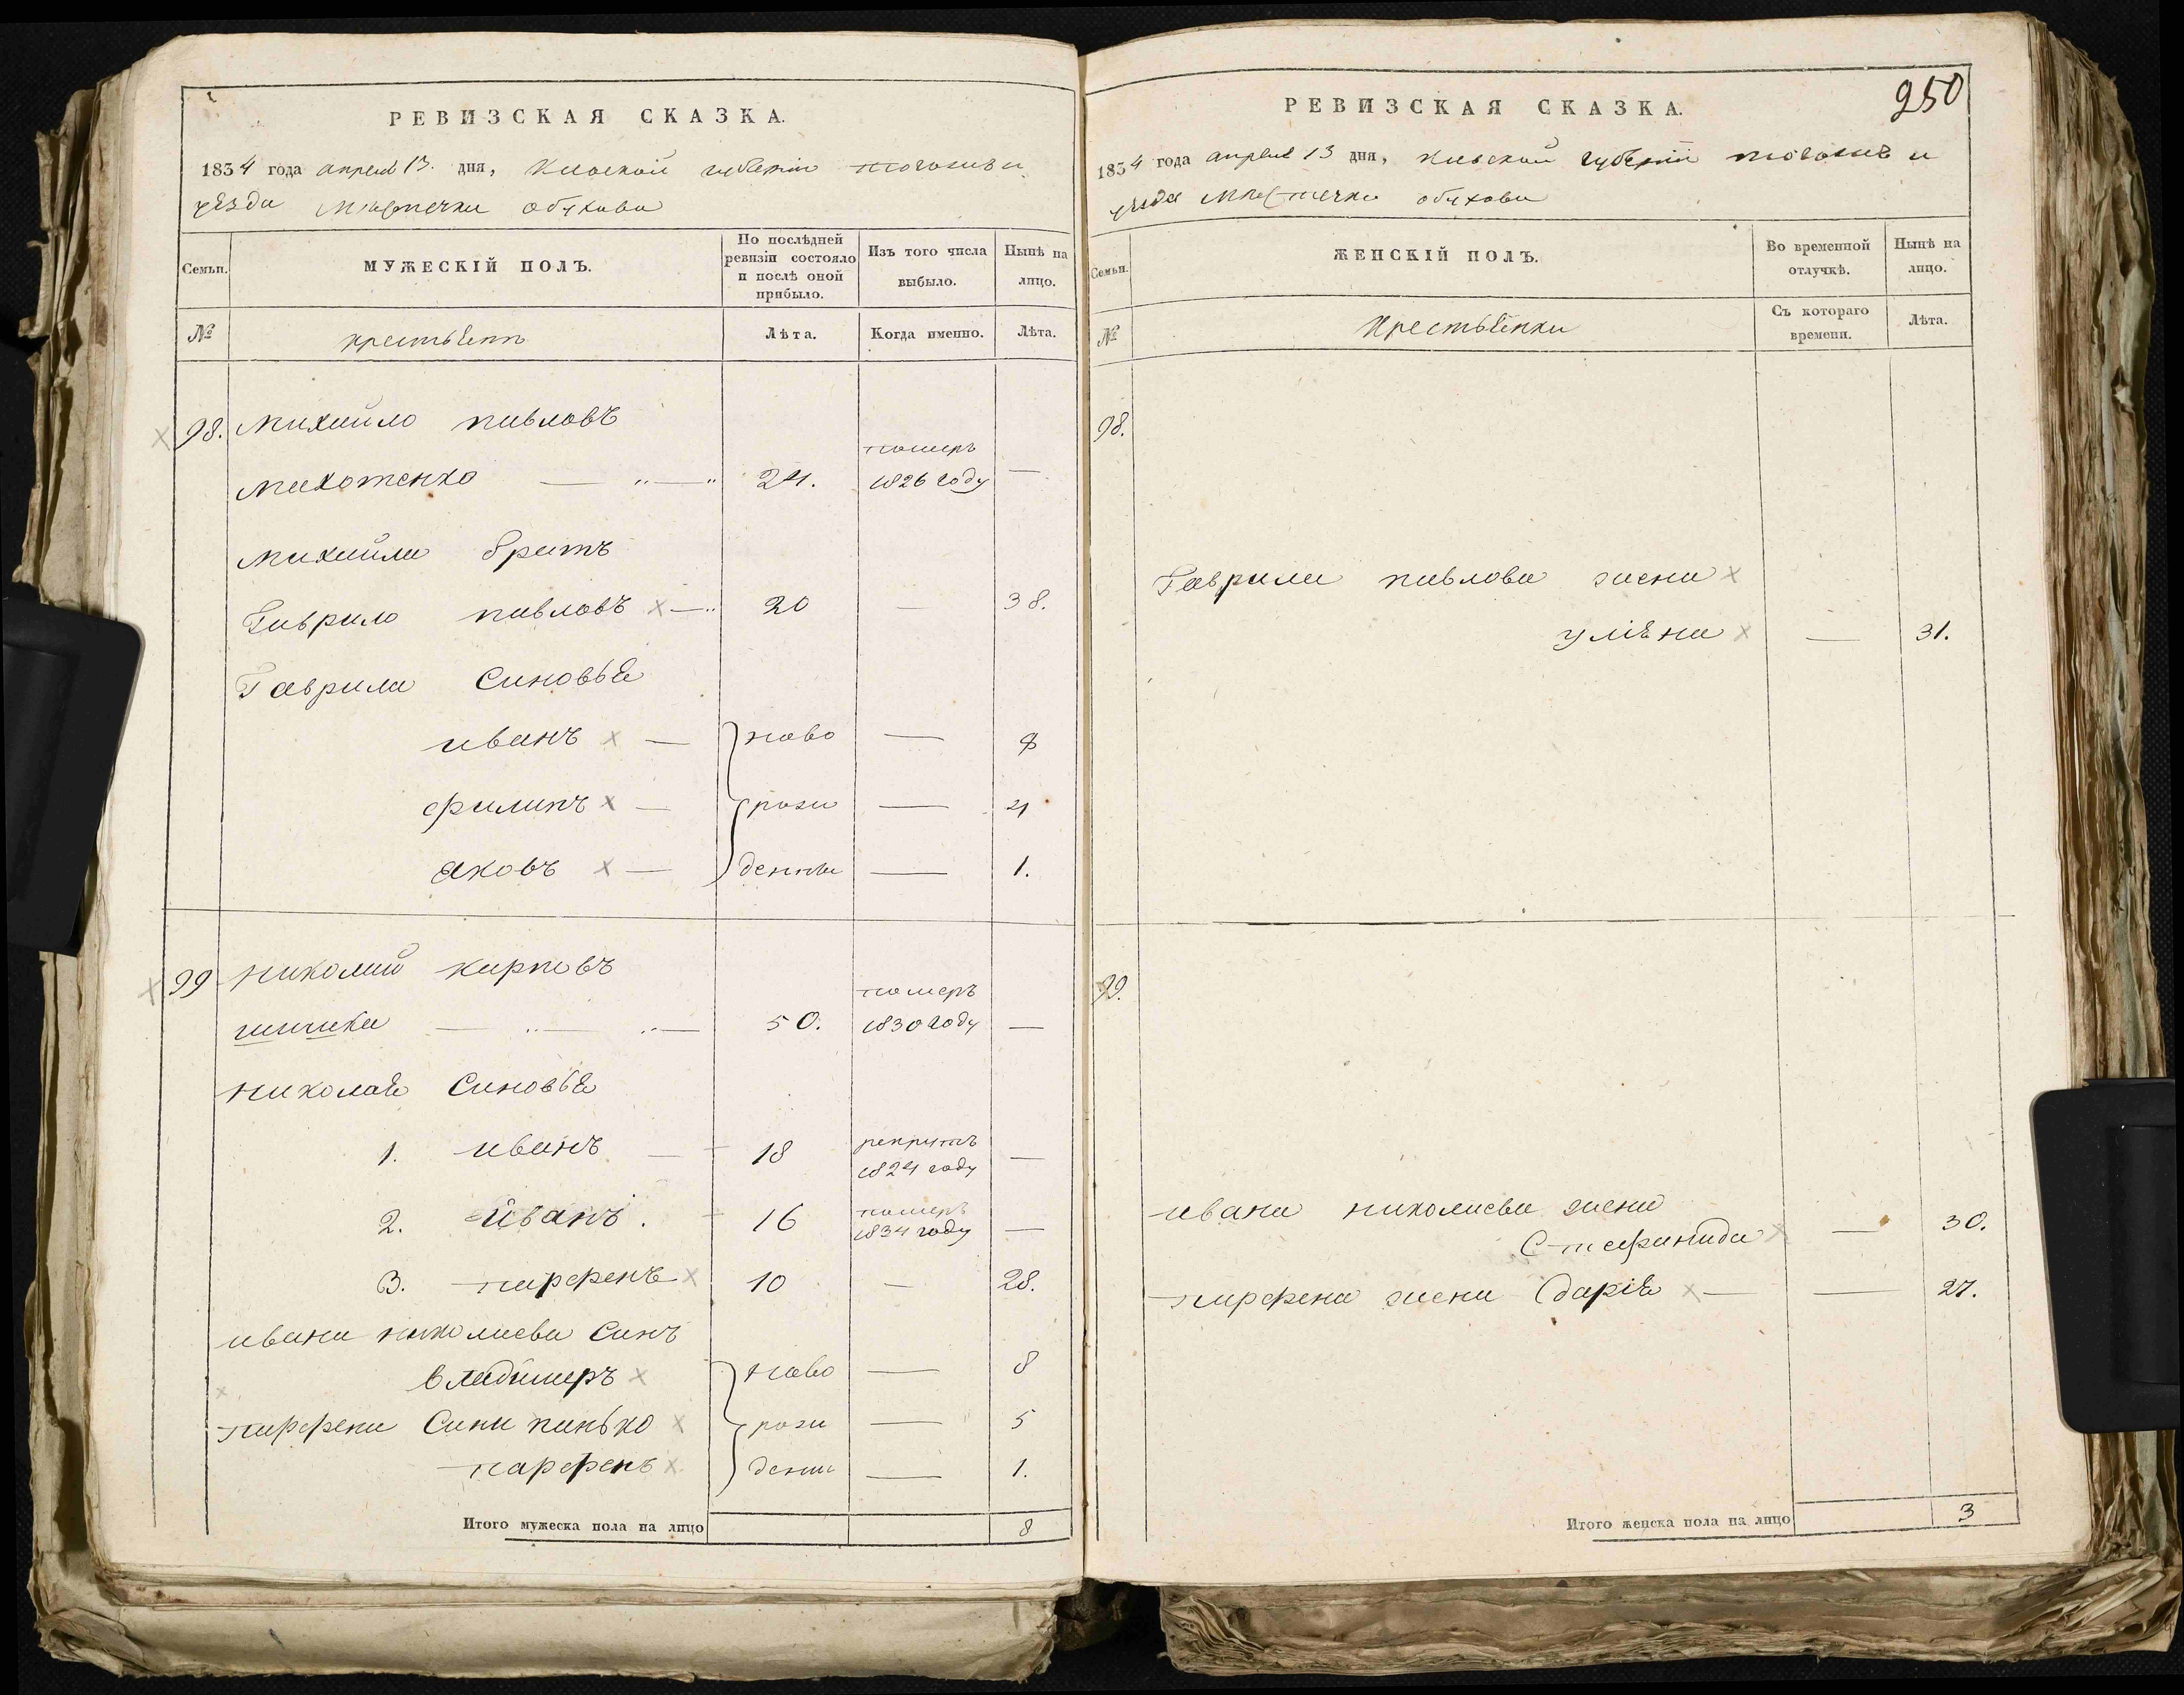 РЕВИЗСКАЯ СКАЗКА.
1834 года апреля 13. дня, Киевской губернии
уезда местечка обухова
Семьи.
МУЖЕСКІЙ ПОЛЪ.
По послѣдней ревизіи состояло и послѣ оной прибыло.
Изъ того числа выбыло.
Нынѣ на лицо.
№
крестьяне
Лѣта.
Когда именно.
Лѣта.
98. Михайло павловъ
24. померъ 1826 году —
михайла братъ
Гаврило павловъ 20 — 38.
Гаврила Синовья
иванъ — ново — 8
филипъ — рож — 4
яковъ — денны — 1.
99 николай карповъ
50. померъ 1830 году —
николая Синовья
1. иванъ — 18 рекрутъ 1824 году —
2. иванъ. 16 померъ 1834 году —
3. парфенъ 10 — 28.
ивана николаева Синъ
владимеръ ново — 8
парфена Сини панько рож — 5
парфенъ — 1.
Итого мужеска пола на лицо 8
250
РЕВИЗСКАЯ СКАЗКА.
1834 года апреля 13 дня, киевской губернии
уезда местечка обухова
Семьи.
ЖЕНСКІЙ ПОЛЪ.
Во временной отлучкѣ.
Нынѣ на лицо.
№
Крестьянки
Съ котораго времени.
Лѣта.
98.
Гаврила павлова жена
уляна — 31.
99.
ивана николаева жена
Стефанида — 30.
парфена жена дарія — 27.
Итого женска пола на лицо 3